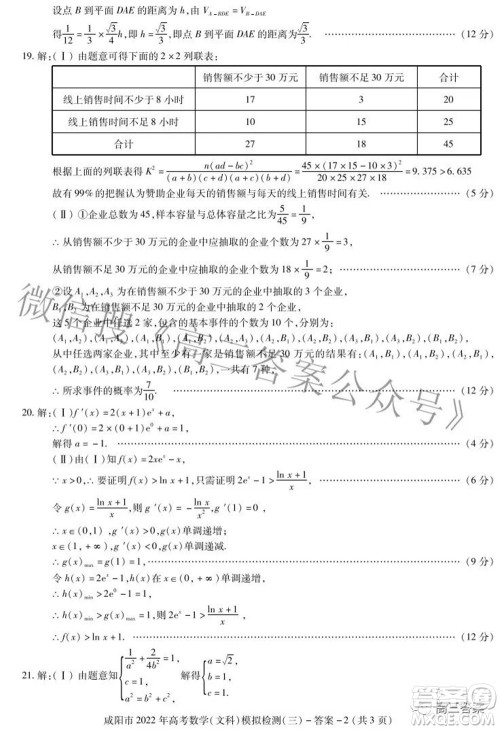 设点 B 到平面 DAE 的距离为 h,由 V_{A-BDE} = V_{B-DAE}
得 1/12 = 1/3 × √3/4 h,即 h = √3/3,即点 B 到平面 DAE 的距离为 √3/3. (12 分)
19. 解:(Ⅰ)由题意可得下面的 2×2 列联表:
销售额不少于 30 万元 销售额不足 30 万元 合计
线上销售时间不少于 8 小时 17 3 20
线上销售时间不足 8 小时 10 15 25
合计 27 18 45
根据上面的列联表得 K² = n(ad-bc)²/((a+b)(c+d)(a+c)(b+d)) = 45×(17×15-10×3)²/(20×25×27×18) = 9.375 > 6.635
故有 99% 的把握认为赞助企业每天的销售额与每天的线上销售时间有关. (5 分)
(Ⅱ)①企业总数为 45,样本容量与总体容量之比为 5/45 = 1/9,
∴从销售额不少于 30 万元的企业中应抽取的企业个数为 27×1/9 = 3,
从销售额不足 30 万元的企业中应抽取的企业个数为 18×1/9 = 2; (7 分)
②设 A₁,A₂,A₃ 为在销售额不少于 30 万元中抽取的 3 个企业,
B₁,B₂ 为在销售额不足 30 万元的企业中抽取的 2 个企业,
这 5 个企业中任选 2 家,包含的基本事件的个数为 10,分别为:
从中任选两家企业,其中至少有 1 家是销售额不足 30 万元的结果有:
一共有 7 种,
∴所求事件的概率为 7/10. (12 分)
20. 解:(Ⅰ)f′(x) = 2(x+1)eˣ + a,
∴f′(0) = 2×(0+1)e⁰ + a,
解得 a = -1. (4 分)
(Ⅱ)由(Ⅰ)知 f(x) = 2xeˣ - x,
∵x>0,∴要证明 f(x) > ln x + 1,只需证明 2eˣ - 1 > (ln x + 1)/x, (6 分)
令 g(x) = (ln x + 1)/x,则 g′(x) = -ln x/x²,g′(1) = 0
∴x∈(0,1),g′(x)>0,g(x)单调递增;
x∈(1,+∞),g′(x)<0,g(x)单调递减.
∴g(x)max = g(1) = 1, (9 分)
令 h(x) = 2eˣ - 1,h(x)在 x∈(0,+∞)单调递增,
∴h(x)min > 2e⁰ - 1 = 1,
∴h(x)min > g(x)max = 1,即 2eˣ - 1 > (ln x + 1)/x
∴f(x) > ln x + 1. (12 分)
21. 解:(Ⅰ)由题意知 { 1/a² + 2/4b² = 1 c = 1, a² = b² + c², 解得 { a = √2, b = 1, c = 1,
咸阳市 2022 年高考数学(文科)模拟检测(三) - 答案 - 2 (共 3 页)
微信搜《高三答案公众号》
高三答案